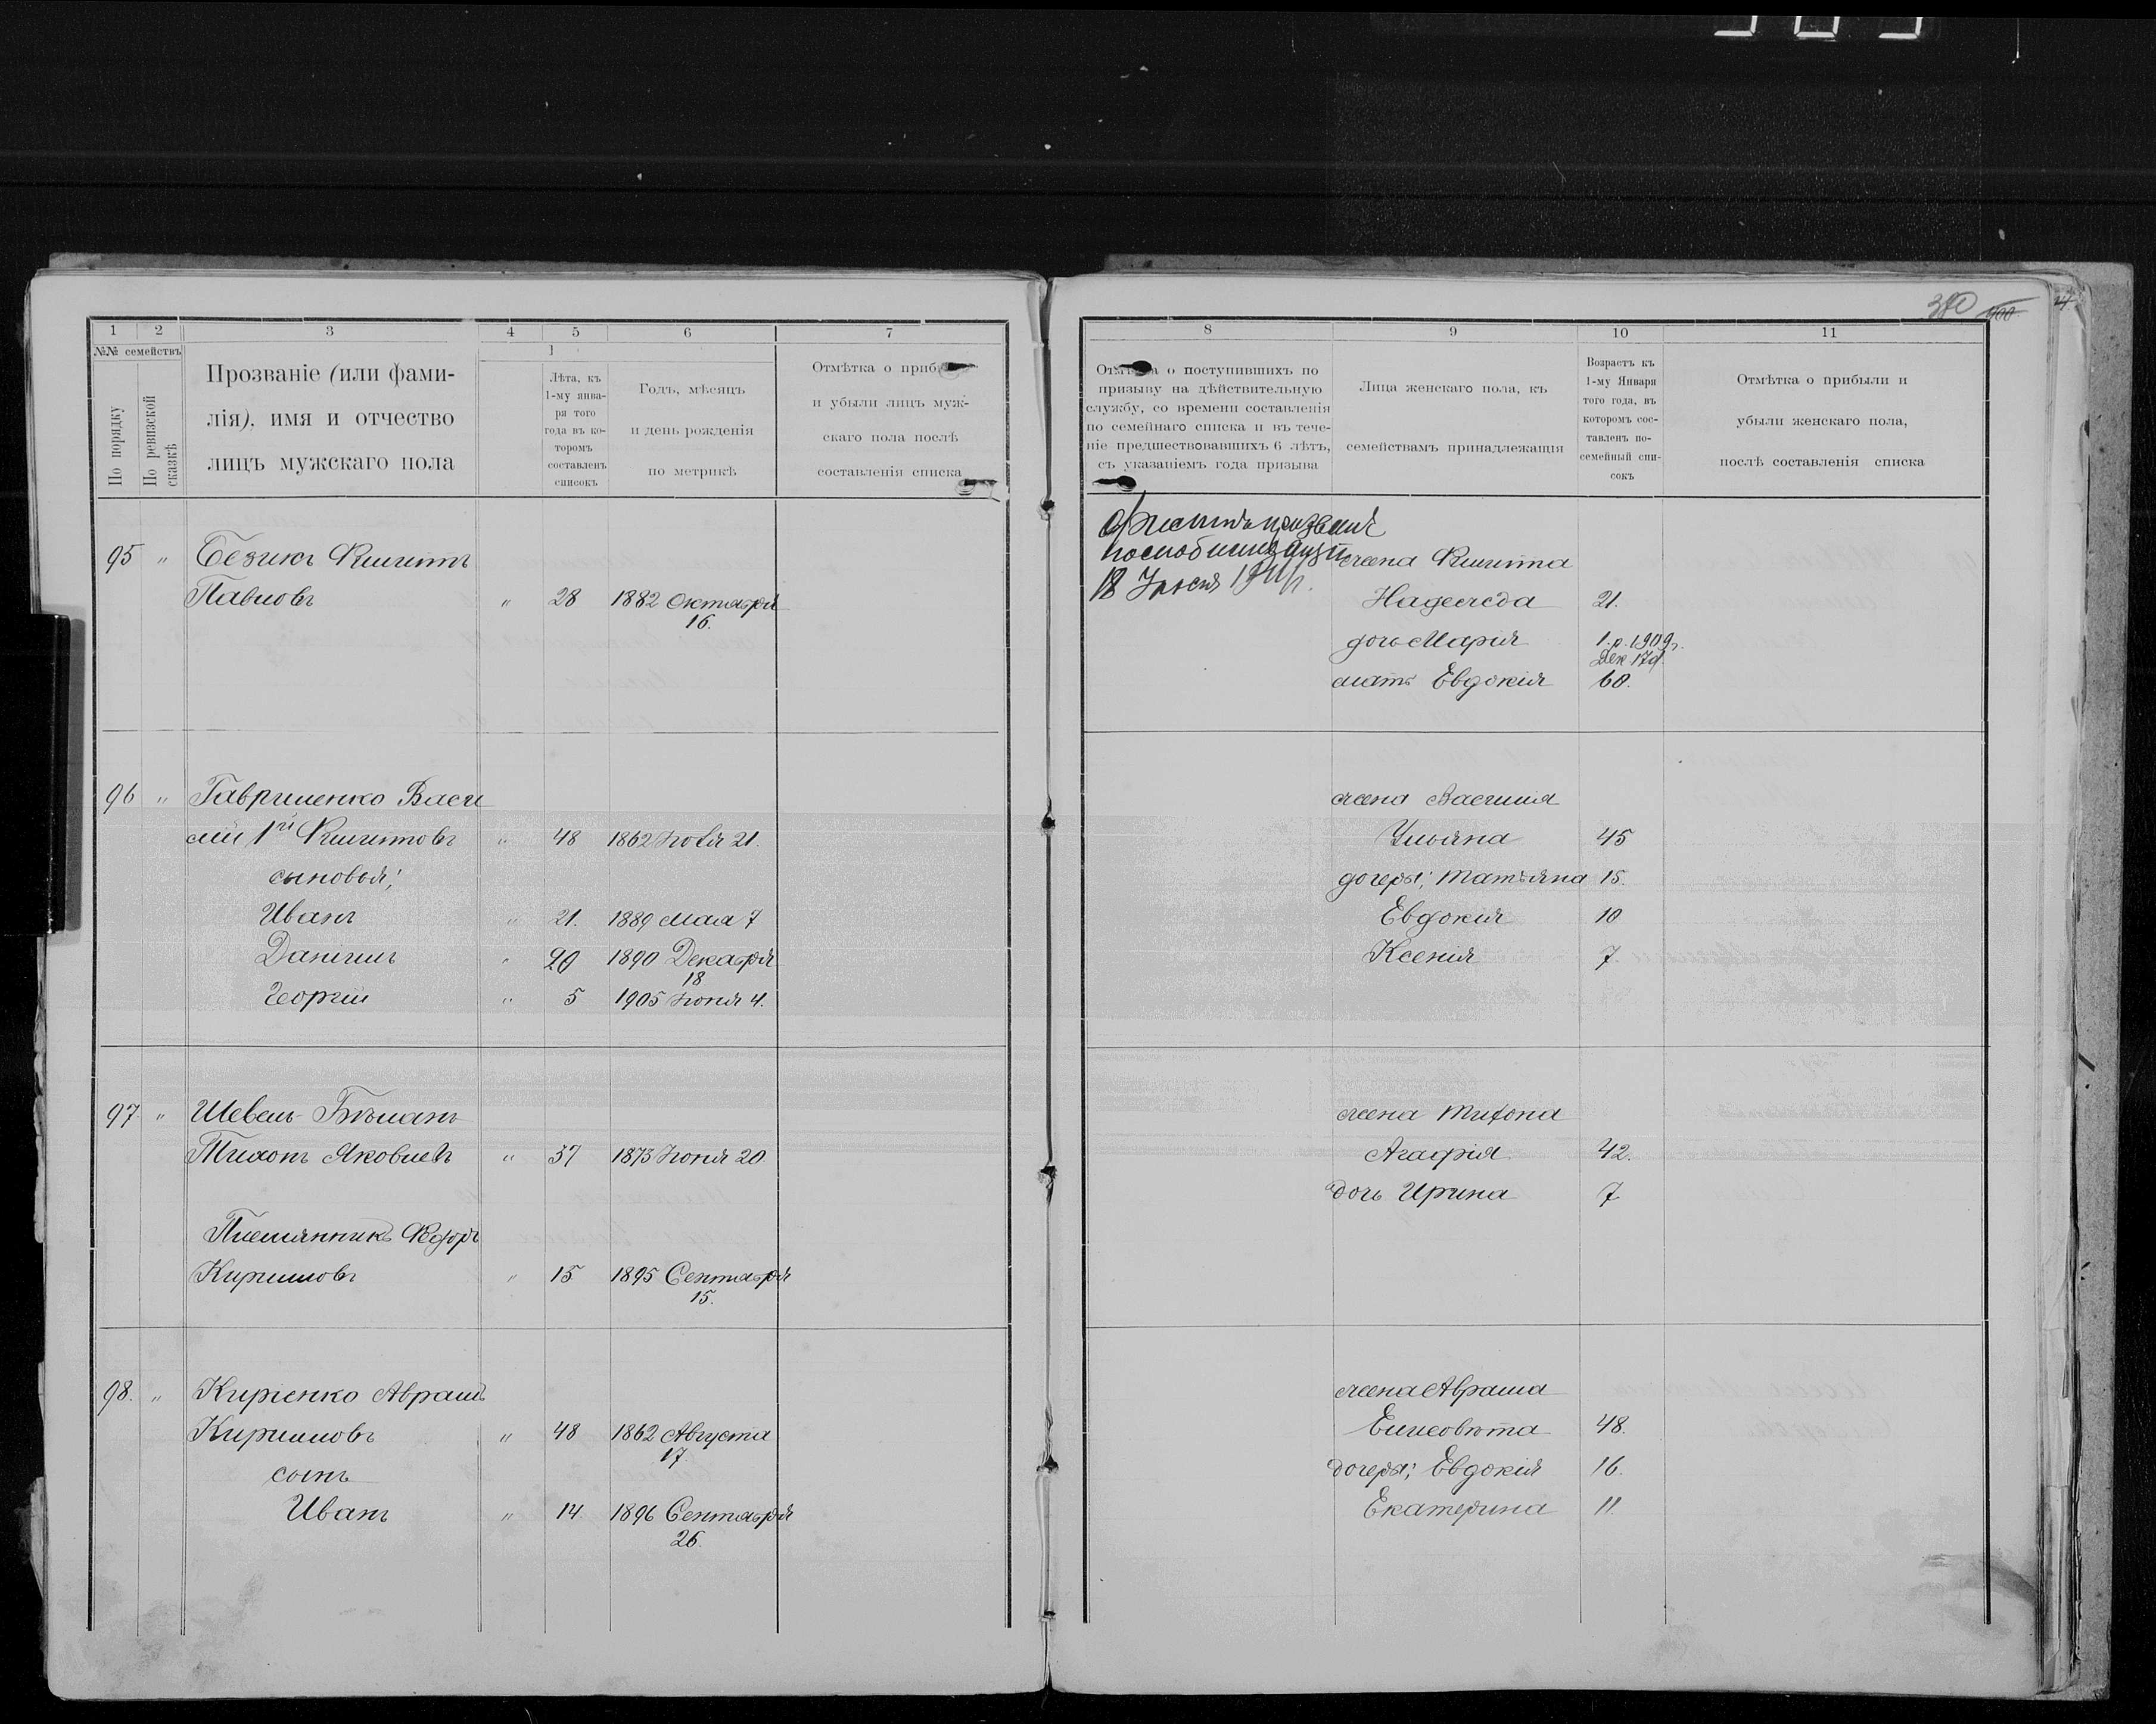 380 400
1 2 3 4 5 6 7
№№ семействъ
По порядку
По ревизской сказкѣ
Прозваніе (или фами-
лія), имя и отчество
лицъ мужскаго пола
Лѣта, къ
1-му янва-
ря того
года въ ко-
торомъ
составленъ
списокъ
Годъ, мѣсяцъ
и день рожденія
по метрикѣ
Отмѣтка о приб
и убыли лицъ муж-
скаго пола послѣ
составленія списка
95 " Безикъ Филиппъ
Павловъ " 28 1882 Октября
16.
96 " Гавриленко Васи
лій 1й Филипповъ " 48 1862 Іюля 21.
сыновья;
Иванъ " 21. 1889 Мая 7
Даніилъ " 20 1890 Декабря
18
Георгій " 5 1905 Іюня 4.
97. " Шевель-
Тихонъ Яковлевъ " 37 1873 Іюня 20.
Племянникъ Федоръ
Кирилловъ " 15 1895 Сентября
15.
98. " Киріенко Аврамъ
Кирилловъ " 48 1862 Августа
17.
сынъ
Иванъ " 14. 1896 Сентября
26.
8 9 10 11
о поступившихъ по
призыву на дѣйствительную
службу, со времени составленія
по семейнаго списка и въ тече-
ніе предшествовавшихъ 6 лѣтъ,
съ указаніемъ года призыва
Лица женскаго пола, къ
семействамъ принадлежащія
Возрастъ къ
1-му Января
того года, въ
которомъ сос-
тавленъ по-
семейный спи-
сокъ
Отмѣтка о прибыли и
убыли женскаго пола,
послѣ составленія списка
призванъ
по мобилизаціи
18 Іюля
жена Филиппа
Надежда 21.
дочь Марія 1. р. 1909 г.
Дек 17 д.
мать Евдокія 60.
жена Василія
Ульяна 45
дочери; Татьяна 15.
Евдокія 10
Ксенія 7.
жена Тихона
Агафія 42.
дочь Ирина 7
жена Аврама
Елисовѣта 48.
дочери; Евдокія 16.
Екатерина 11.